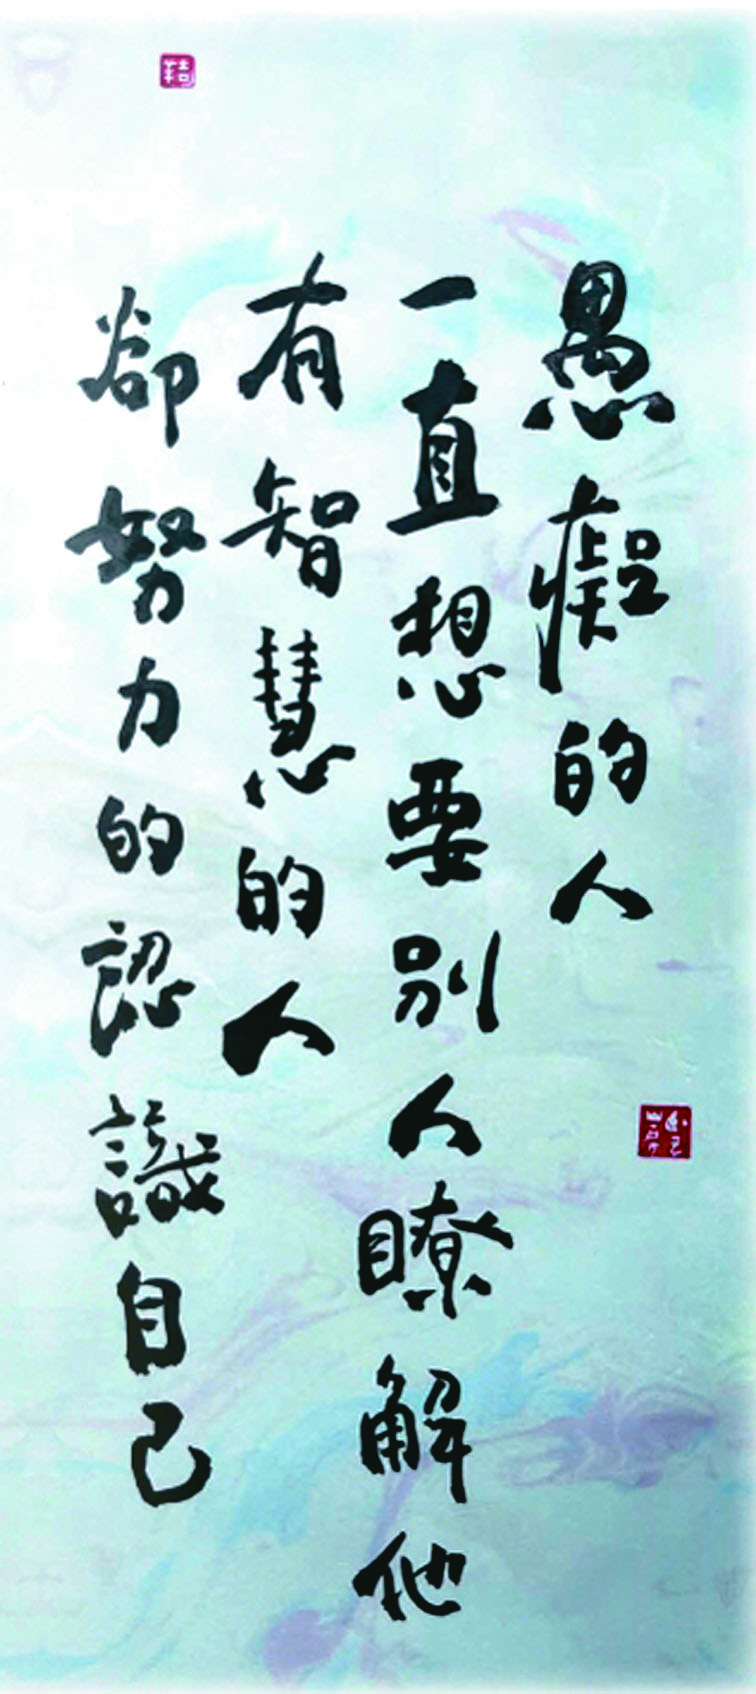 愚癡的人
一直想要別人瞭解他
有智慧的人
卻努力的認識自己